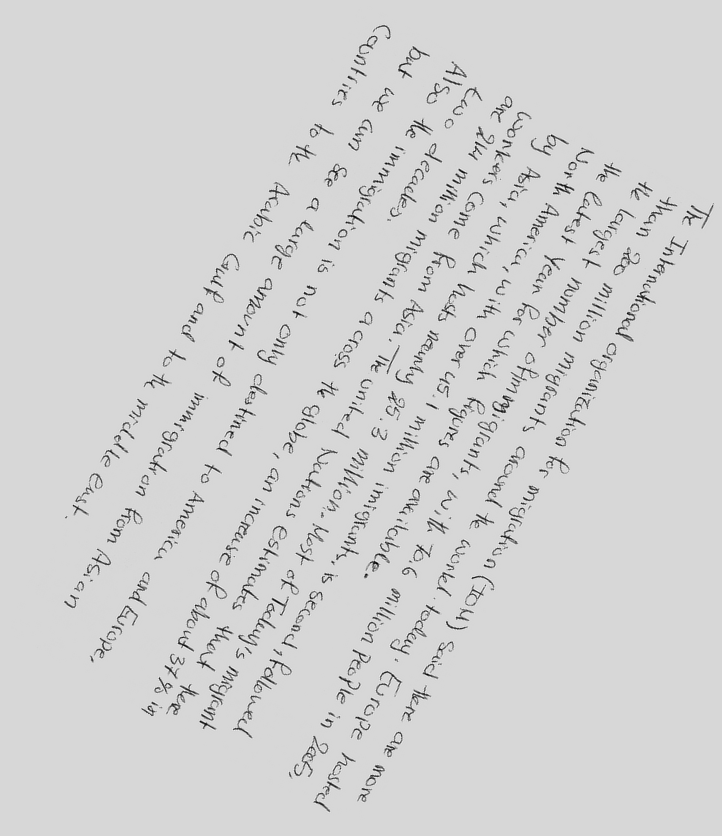 The International organization for migration (IOM) said there are more
than 200 million migrants around te world today. Europe hosted
the largest number of immigrants, with 70.6 million people in 2005,
the latest year for which figures are available.
North America, with over 45.1 million imigrants, is second, followed
by Asia, which hosts nearly 25.3 million. Most of Today's migrant
workers come from Asia. The united Nations estimates that there
are 214 million migrants across the globe, an increase of about 37% in
two decades.
Also the immigration is not only destined to America and Europe,
but we can see a large amount of immigration from Asian
contries to the Arabic Gulf and to the middle East.